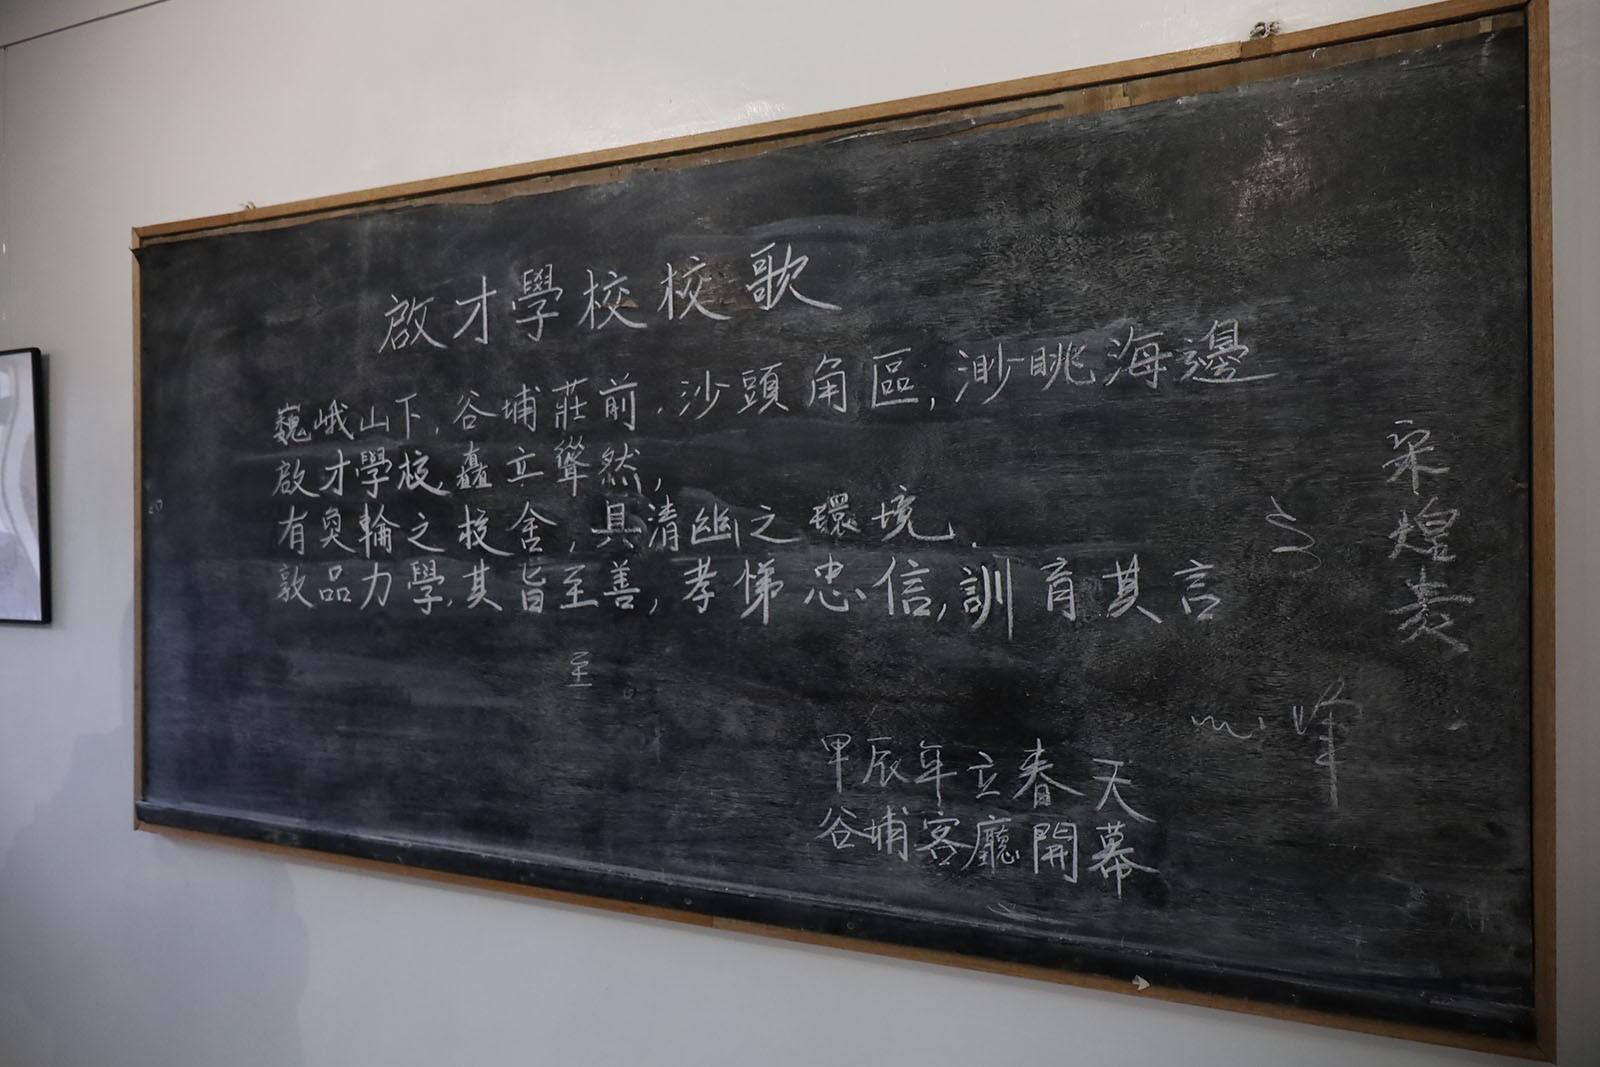 啟才學校校歌
巍峨山下,谷埔莊前,沙頭角區,渺眺海邊
啟才學校,矗立聳然,
有奐輪之校舍,具清幽之環境.
敦品力學,其旨至善,孝悌忠信,訓育其言
至
甲辰年立春天
谷埔客廳開幕
宋煌
峰